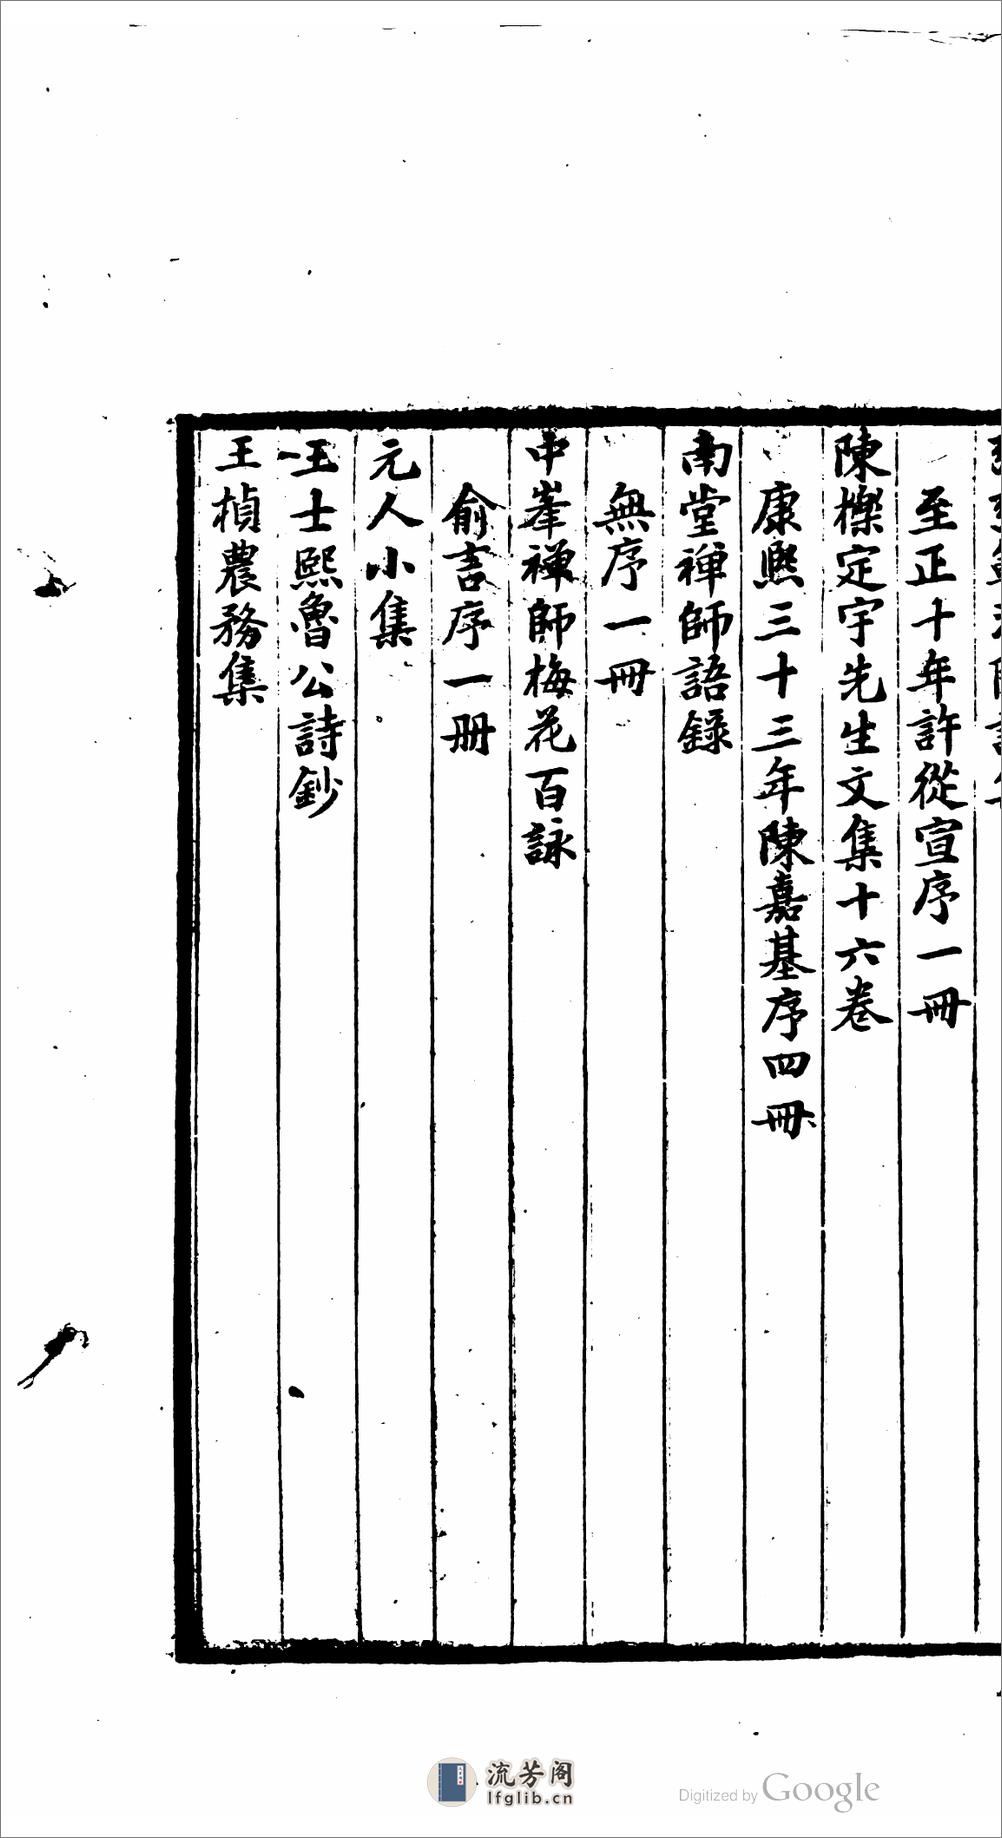 至正十年許從宣序一冊
陳櫟定宇先生文集十六卷
康熙三十三年陳嘉基序四冊
南堂禅師語錄
無序一冊
中峯禅師梅花百詠
俞吉序一册
元人小集
王士熙魯公詩鈔
王楨農務集
流芳阁
lfglib.cn
Digitized by Google